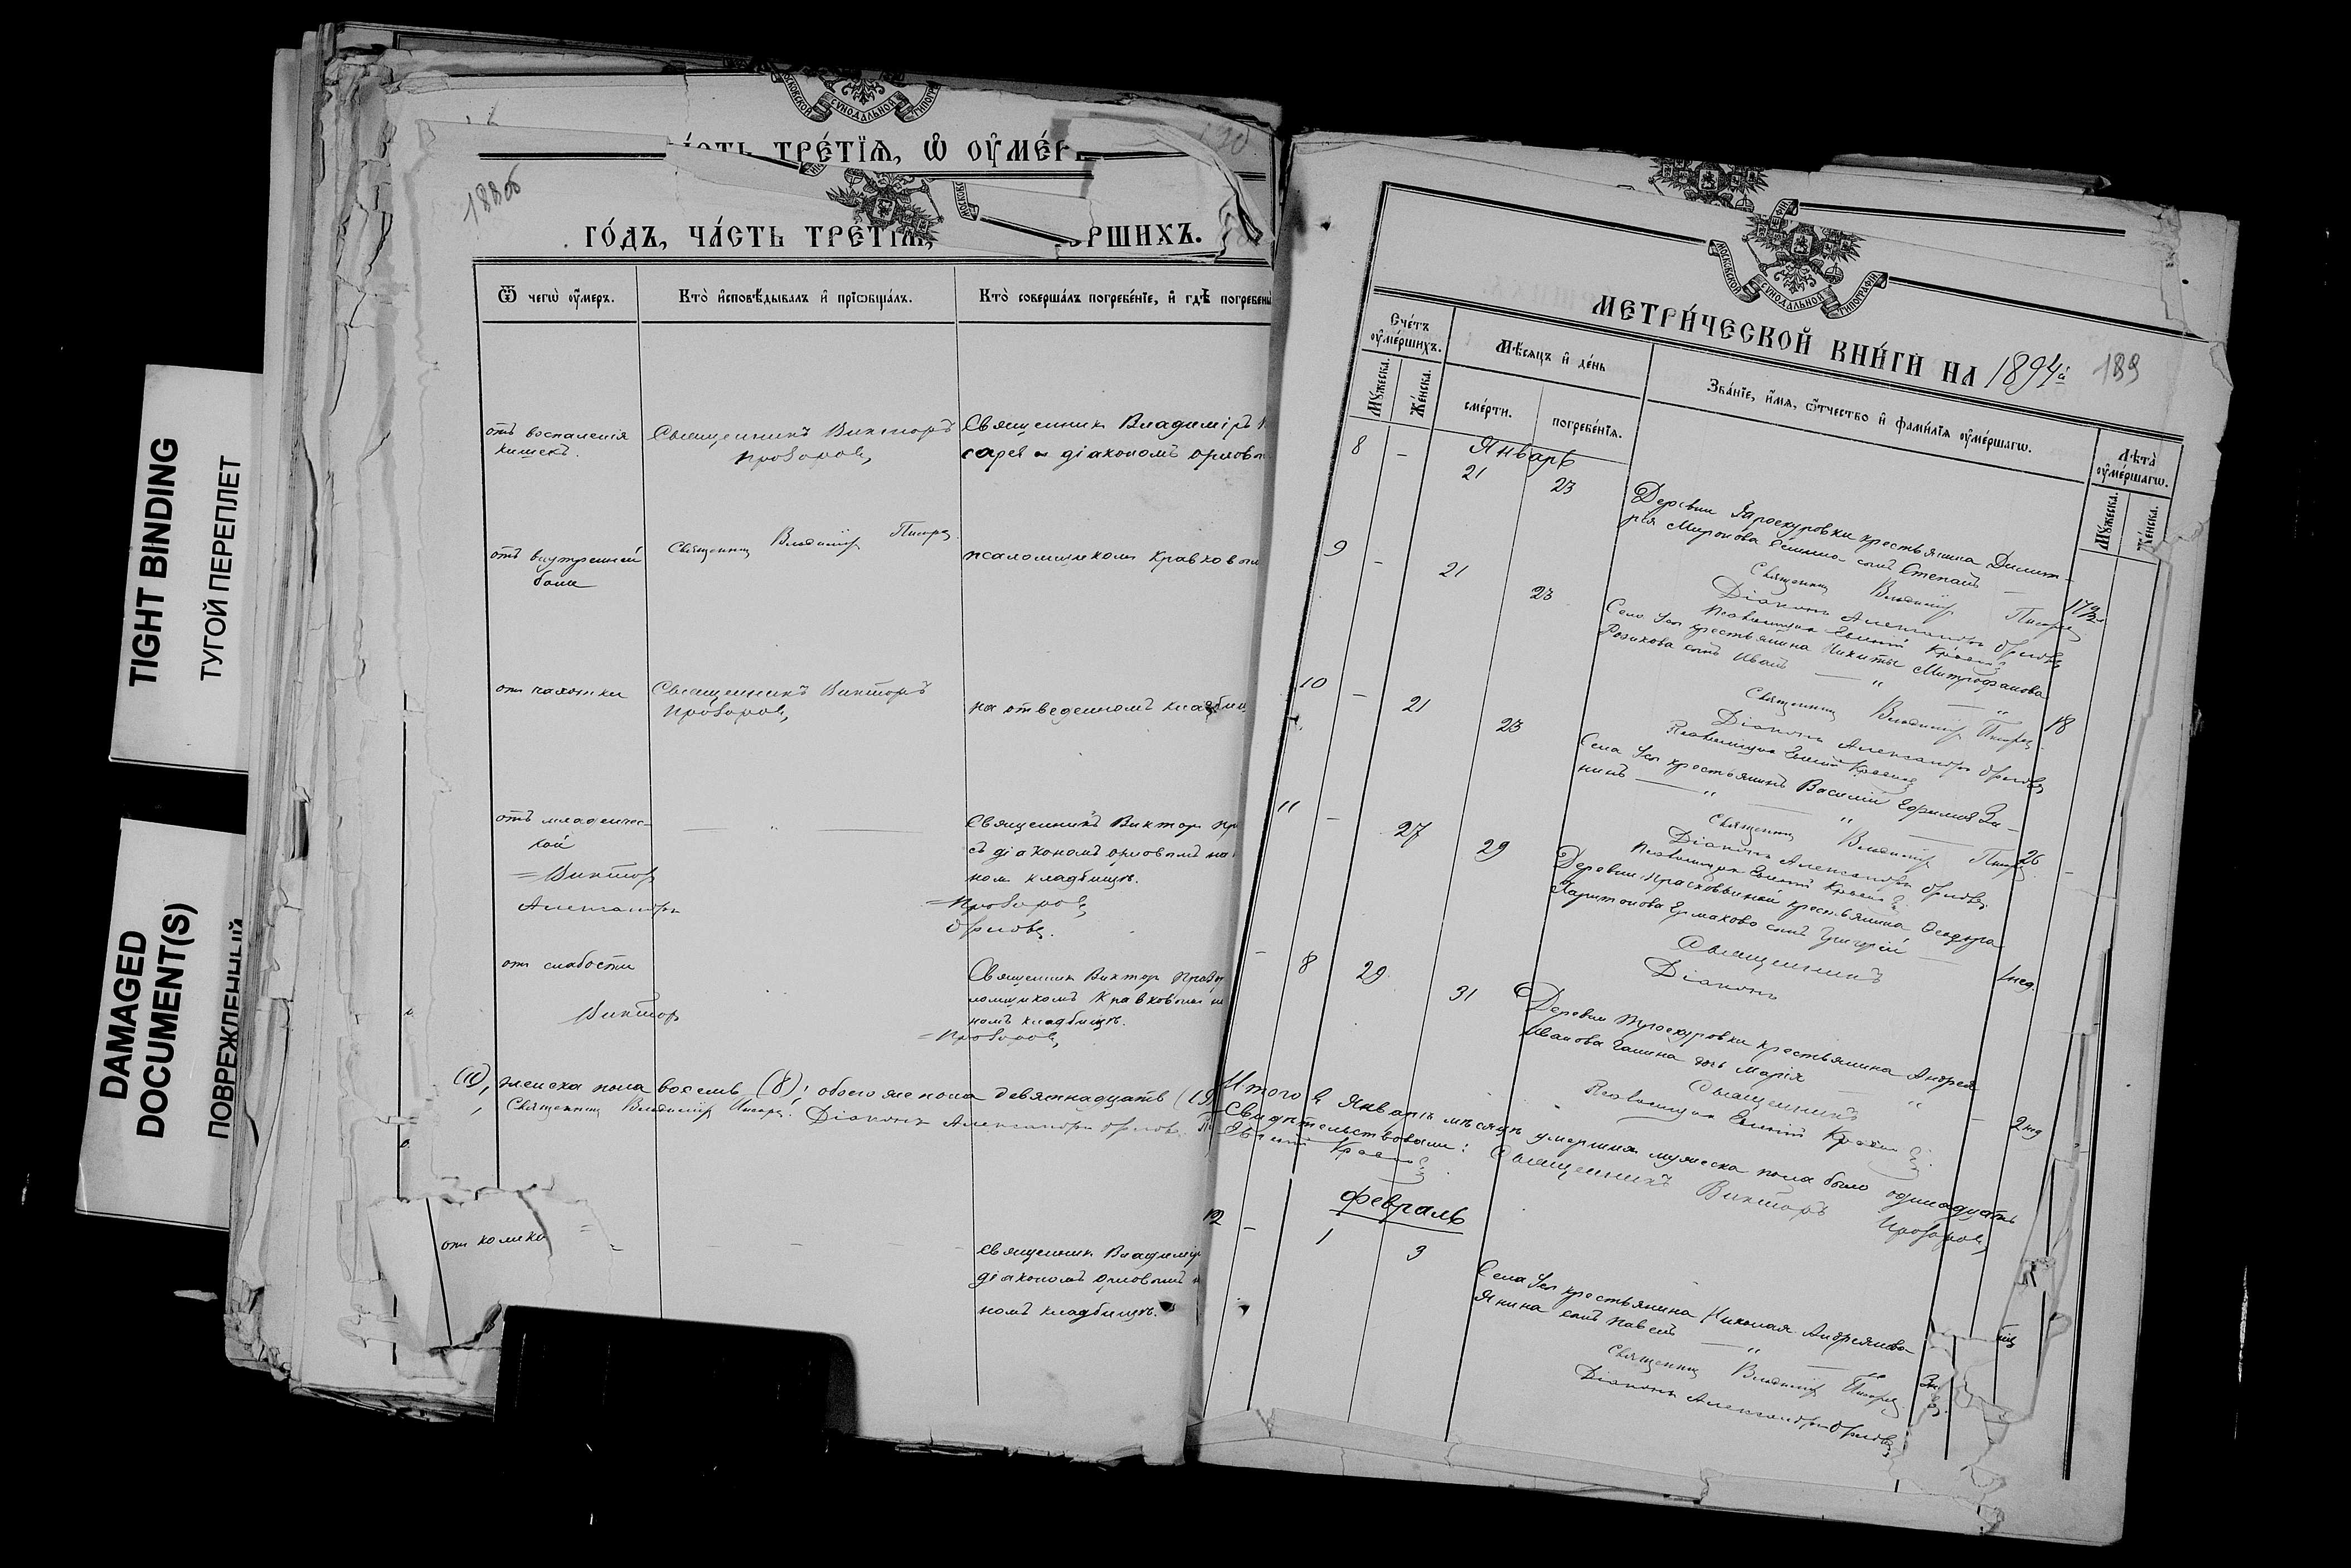 TIGHT BINDING
ТУГОЙ ПЕРЕПЛЕТ
DAMAGED
DOCUMENT(S)
ПОВРЕЖДЕННЫЙ
МОСКОВСКОЙ СУНОДАЛЬНОЙ ТИПОГРАФ
ТРЕ́ТЇѦ, Ѽ ОУ҆МЕ́Р
188об
ГО́ДЪ, ЧА́СТЬ ТРЕ́ТЇѦ, РШИХЪ.
Ѿ чегѡ̀ оу҆́меръ.
Кто̀ и҆сповѣ́дывалъ и҆ прїѡбща́лъ.
Кто̀ соверша́лъ погребе́нїе, и҆ гдѣ̀ погребены
отъ воспаленія
кишекъ.
Священникъ Викторъ
Прозоровъ
Священник Владиміръ
сарев и діакономъ Орловы
отъ внутренней
боли
Священникъ Владиміръ Писарев
псаломщиком Кравковым
от чахотки
Священникъ Викторъ
Прозоровъ
на отведенномъ кладбищ
отъ младенчес-
кой
Священникъ Виктор Пр
съ діакономъ Орловымъ на
ном кладбищѣ.
Виктор
Прозоровъ
Александръ
Орловъ.
от слабости
Священник Виктор Прозо
ломщикомъ Кравковым
номъ кладбищѣ.
Виктор
Прозоровъ
(11), женска пола восемь (8); обоего же пола девятнадцать (19)
Священникъ Владиміръ Писарев. Діаконъ Александръ Орлов.
от колика
Священник Владимір
діакономъ Орловымъ
номъ кладбищѣ.
МЕТРИ́ЧЕСКОЙ КНИ́ГИ НА 1894й
189
Сче́тъ оу҆ме́ршихъ.
Мꙋ́жеска.
Же́нска.
Мѣ́сяцъ и҆ де́нь
сме́рти.
погребе́нїя.
Зва́нїе, и҆́мѧ, ѻ҆́тчество и҆ фами́лїа оу҆ме́ршагѡ.
Лѣ́та оу҆ме́ршагѡ.
Мꙋ́жеска.
Же́нска.
Январь
8 - 21 23
Деревни Проскуровки крестьянина Димит-
рія Миронова сынъ Степанъ
17½
Священникъ Владиміръ Писарев
Діаконъ Александръ Орловъ
Псаломщикъ Евгеній
9 - 21 23
Села Усп крестьянина Никиты Митрофанова
сынъ Иванъ
18
Священникъ Владиміръ Писарев.
Діаконъ Александръ Орловъ
Псаломщикъ Евгеній
10 - 21 23
Села Усп крестьянинъ Василій Ефимов Зи-
нинъ
26
Священникъ Владиміръ Писарев
Діаконъ Александръ Орловъ.
Псаломщикъ Евгеній
11 - 27 29
Деревни крестьянина Ѳеодора
Харитонова Ермакова сынъ Григорій
1 нед.
Священникъ
Діаконъ
- 8 29 31
Деревни Проскуровки крестьянина Андрея
Иванова дочь Марія
2 нед
Священникъ
Псаломщикъ Евгеній
Итого в Январѣ мѣсяцѣ умерших мужеска пола было одинадцать
Свидѣтельствовали: Священникъ Викторъ Прозоровъ
Евгеній
Февраль
12 - 1 3
Села Усп крестьянина Николая Андреянова
Янина сынъ Павелъ
Священникъ Владиміръ Писарев.
Діаконъ Александръ Орловъ